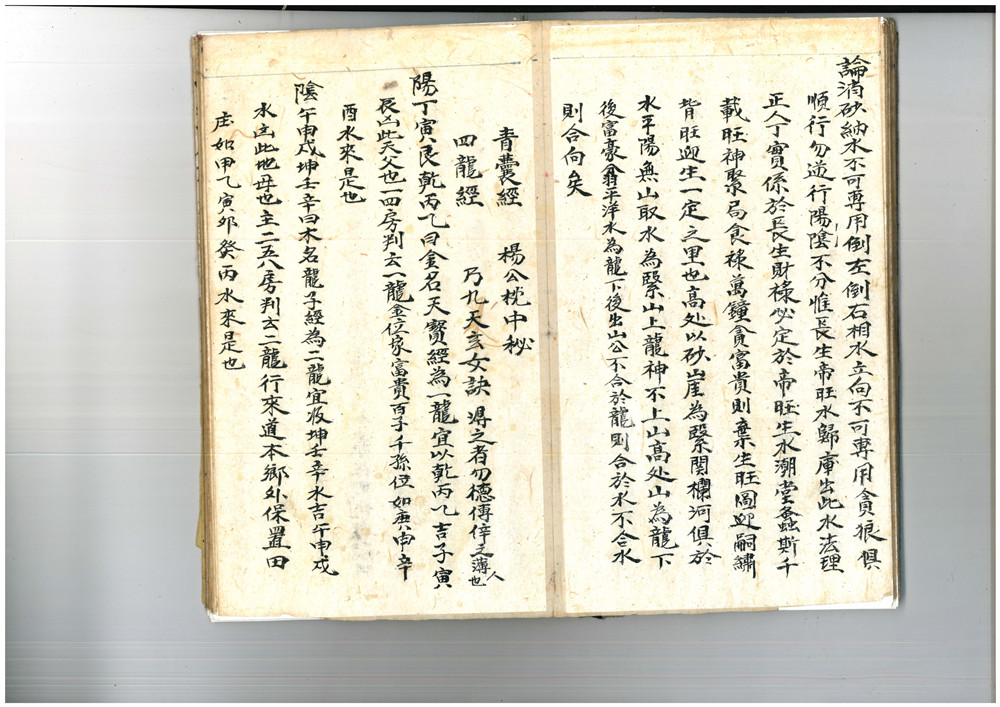 論消砂納水不可專用倒左倒右相水立向不可專用貪狼俱
順行勿逆行陽陰不分惟長生帝旺水歸庫出此水法理
正人丁實係於長生財祿必定於帝旺生水潮堂螽斯千
載旺神聚局食祿萬鐘貪富貴則棄生旺圖迎嗣續
皆旺迎生一定之里也高处以砂山崖為緊関欄河俱於
水平陽無山取水為緊山上龍神不上山高处山為龍下
後富豪翁平洋水為龍下後出山公不合於龍則合於水不合水
則合向矣
青囊經 楊公枕中秘
四龍經 乃九天玄女訣 得之者勿德傳倖之薄人也
陽丁寅艮乾丙乁曰金名天寶經為一龍宜以乾丙乁吉子寅
艮凶此天父也一四房判云一龍金位家富貴百子千孫位如庚申辛
酉水來是也
陰午申戌坤壬辛曰木名龍子經為二龍宜收坤壬辛水吉午申戌
水凶此地母也主二五八房判云二龍行來道本鄉外保置田
庄如甲乁寅卯癸丙水來是也